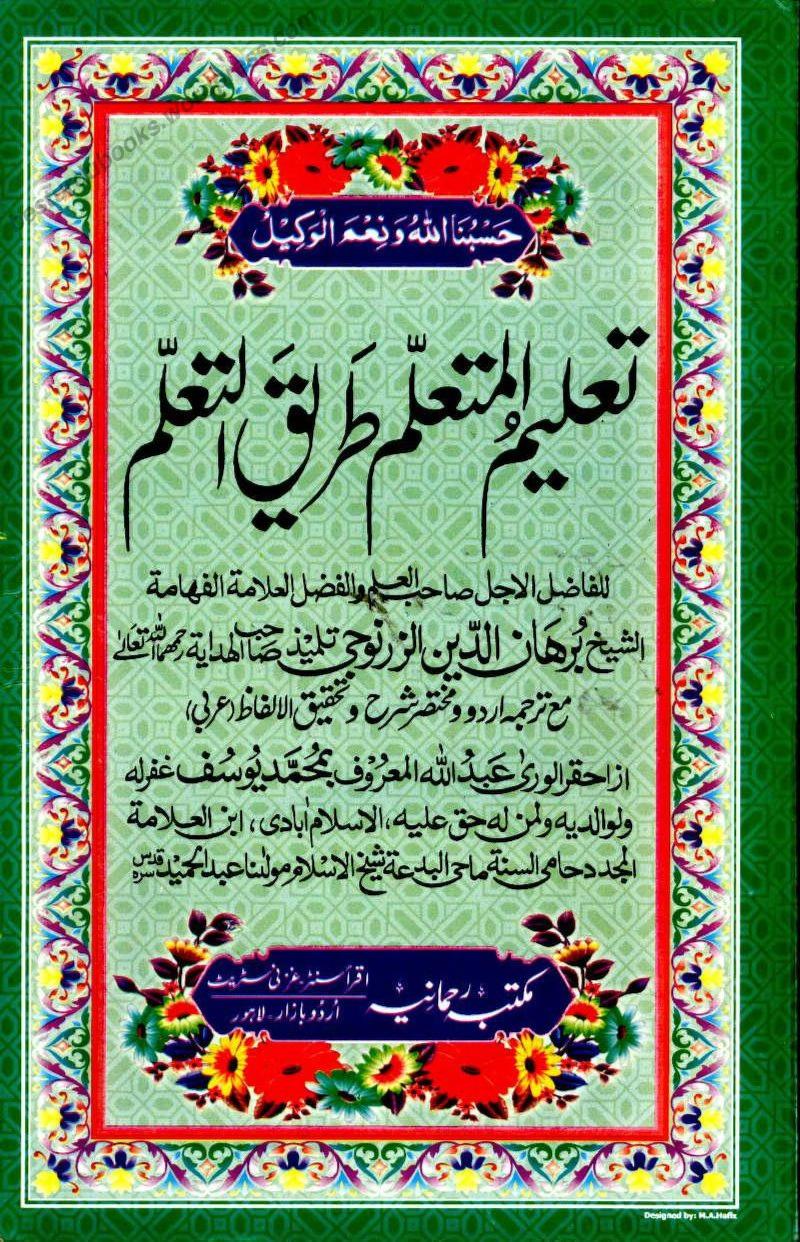 حَسْبُنَا اللّٰهُ وَ نِعْمَ الْوَكِيْلُ
تعليمُ المتعلّم طَريقَ التعلّم
للفاضل الاجل صاحب العلم والفضل العلامة الفهامة
الشيخ بُرهَان الدّين الزرنوجي تلميذ صاحب الهداية رحمهما الله تعالىٰ
مع ترجمہ اردو و مختصر شرح و تحقيق الالفاظ (عربی)
از احقر الورىٰ عَبدُ الله المعروف بمُحمَّد يُوسُف غفر له
ولوالديه ولمن له حق عليه، الاسلام اٰبادی، ابن العلامة
المجدد حامی السنة ماحی البدعة شيخ الاسلام مولٰنا عبد الحميد قدس سره
مکتبہ رحمانیہ
اقرأ سنٹر غزنی سٹریٹ
اُردُو بازار۔ لاہور
Designed by: M.A.Hafiz